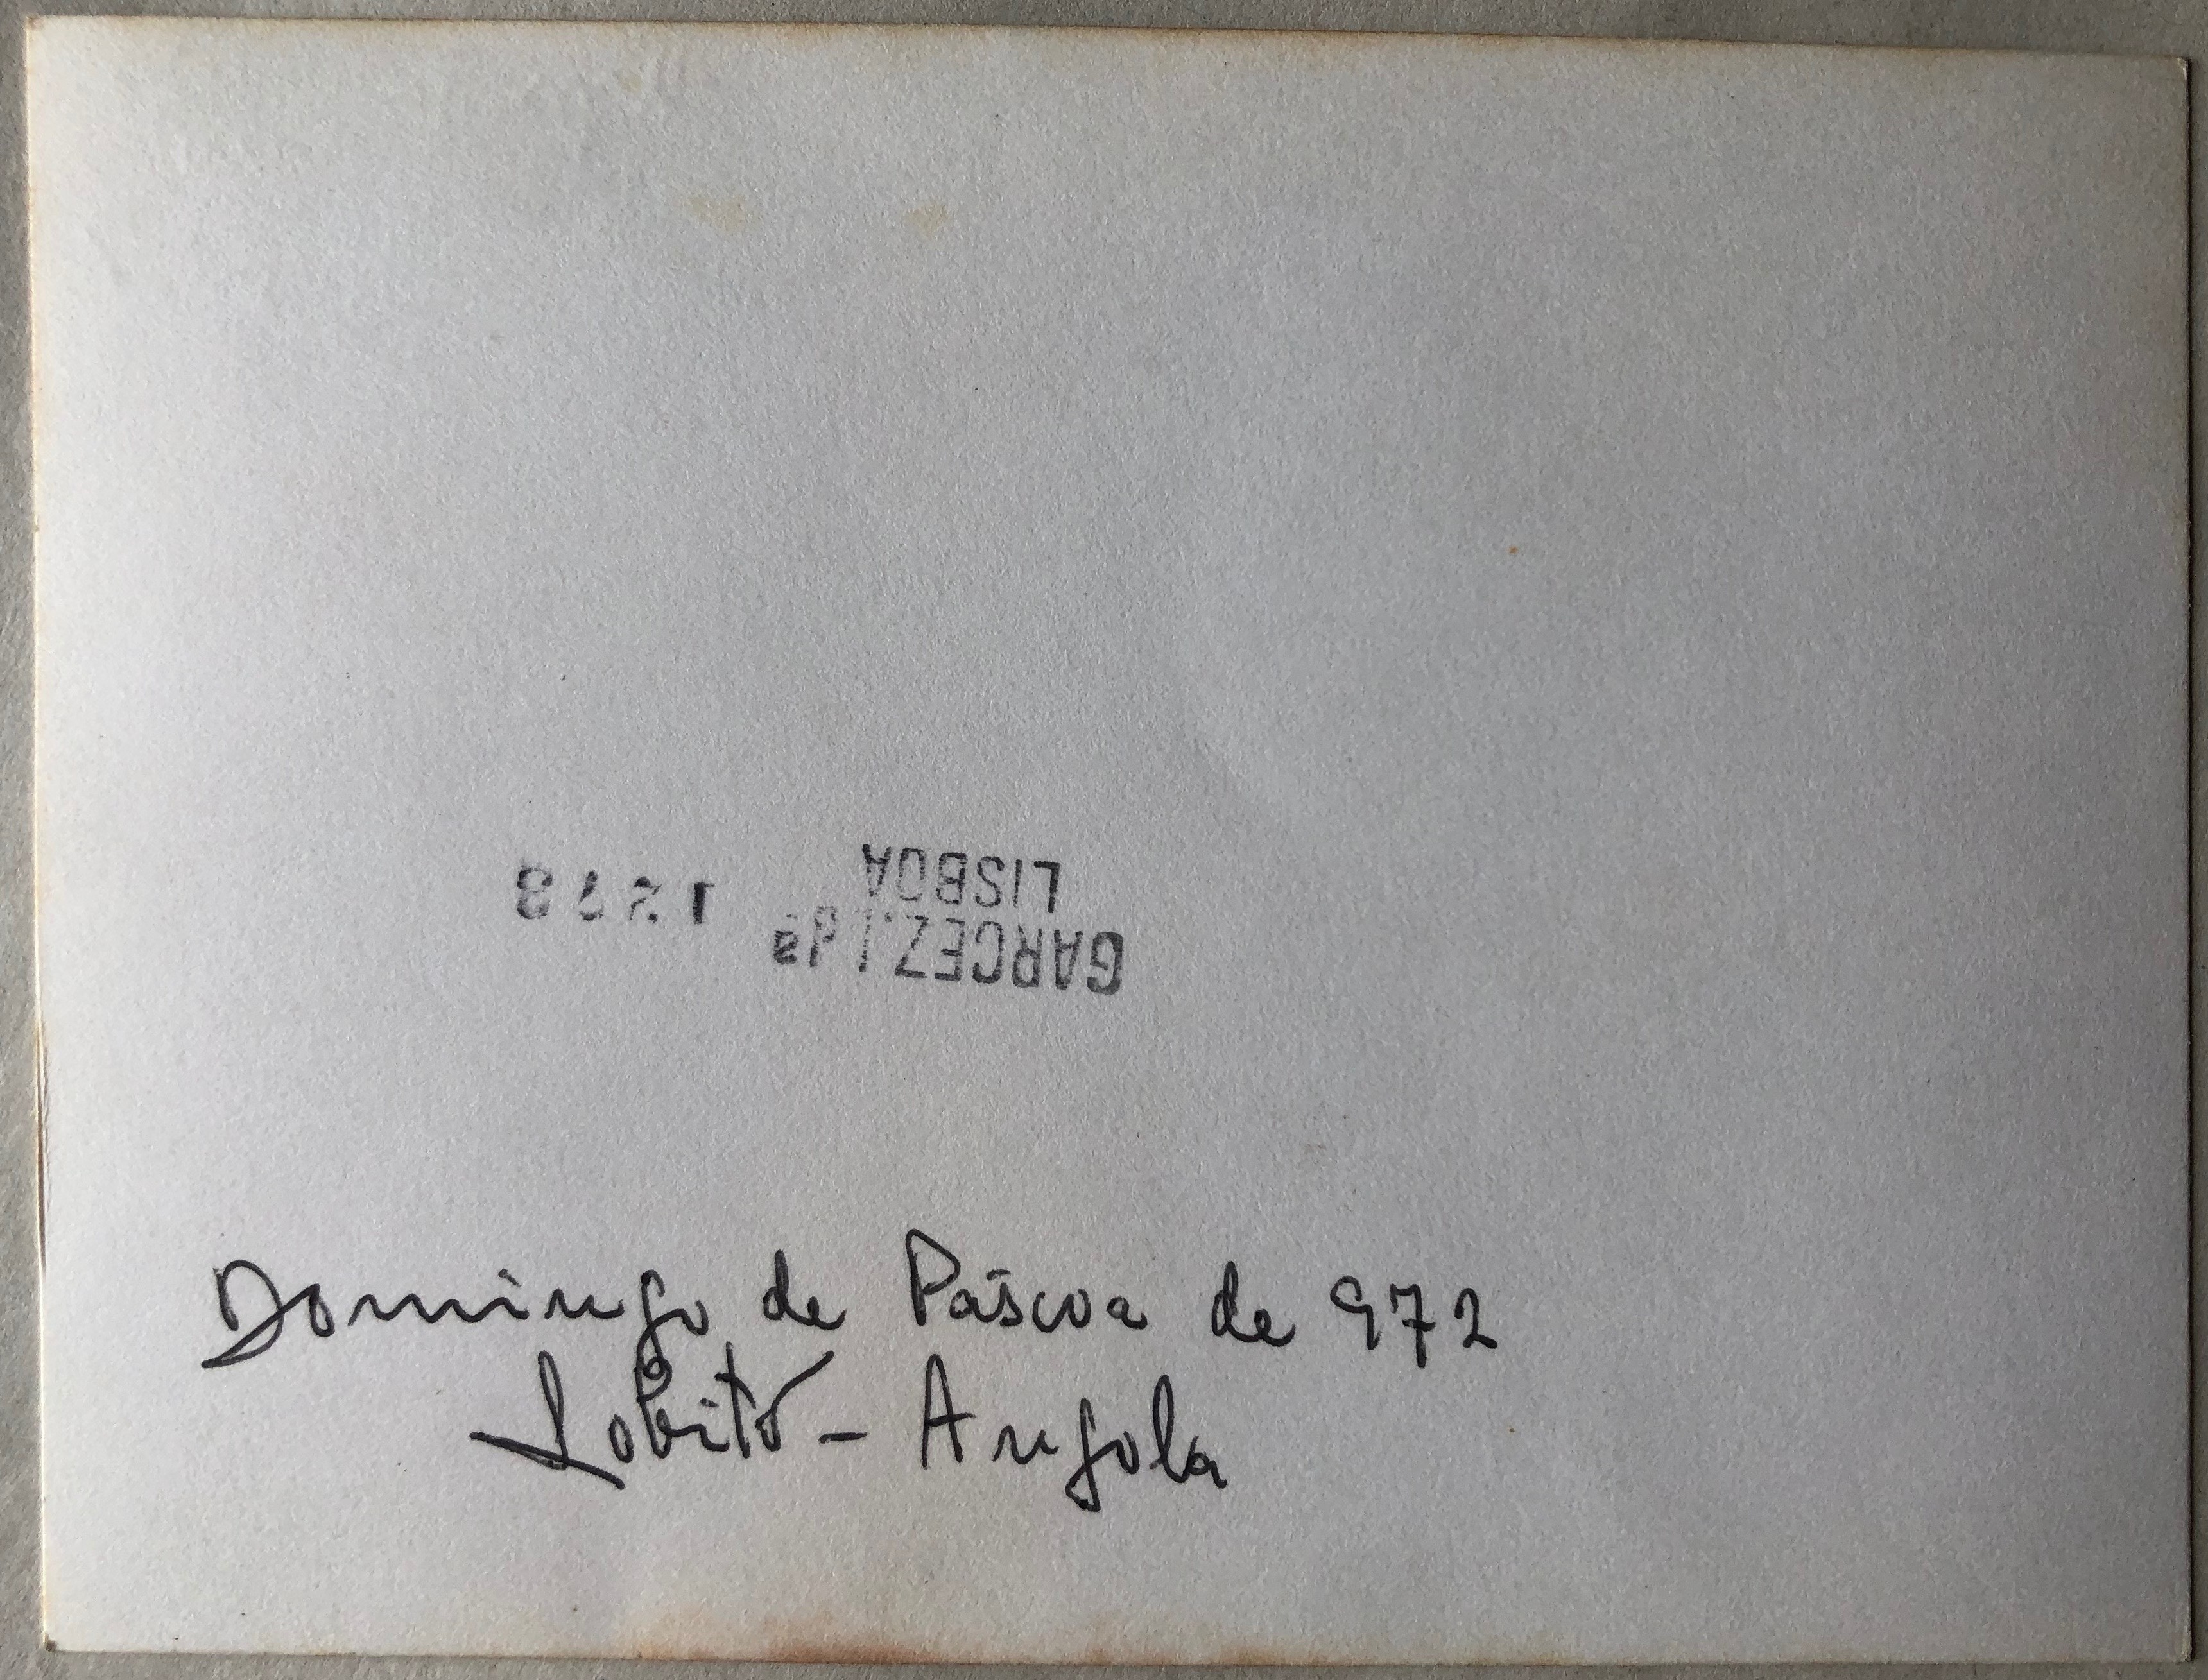 GARCEZ, Ldª
LISBOA
Domingo de Páscoa de 972
Lobito - Angola